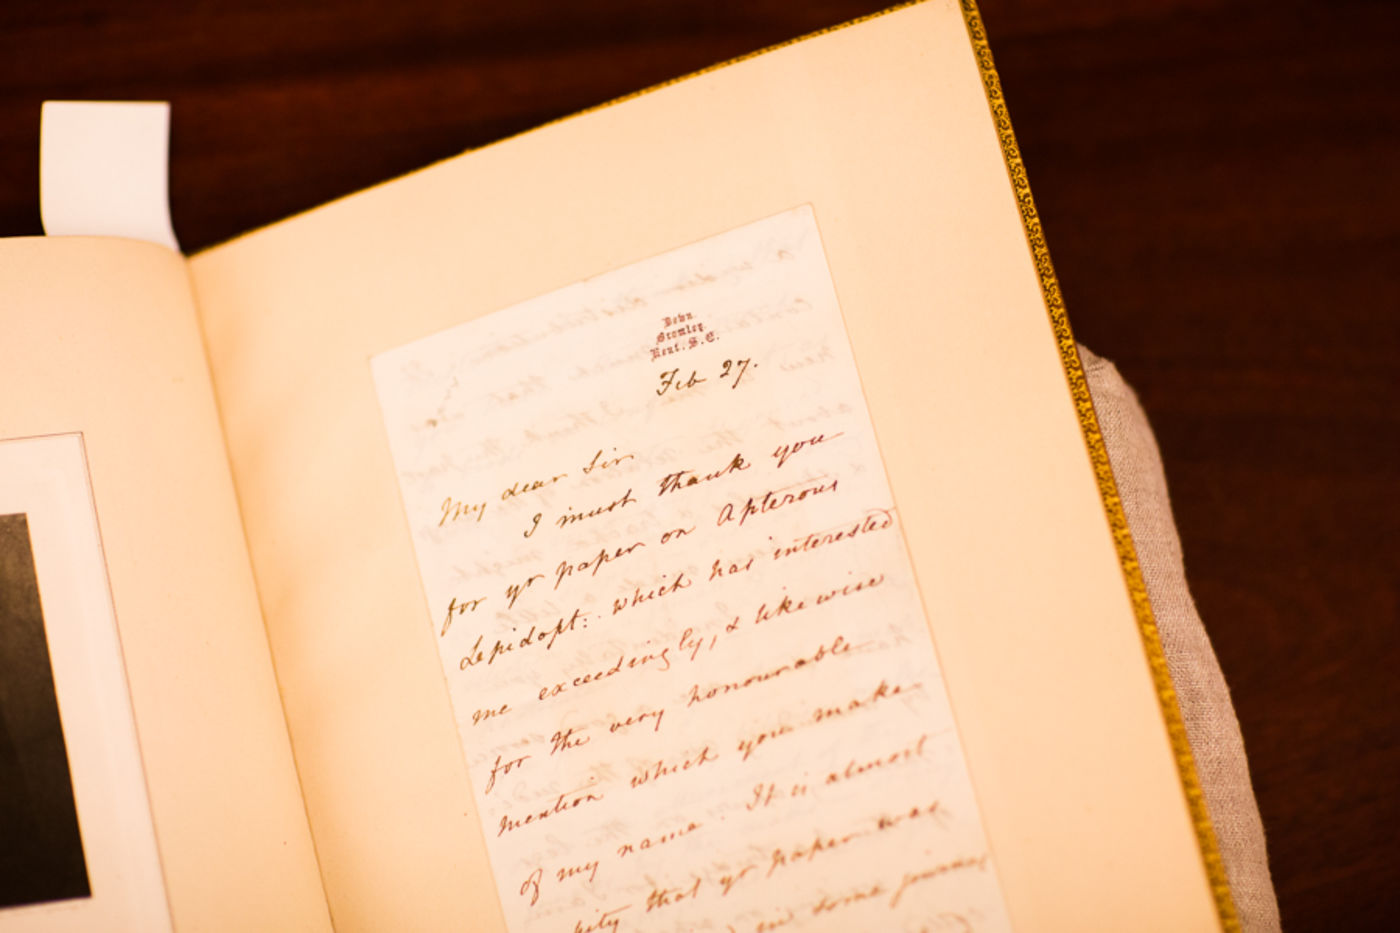 Down.
Bromley.
Kent. S.E.
Feb 27.
My dear Sir
I must thank you
for yr paper on Apterous
Lepidopt: which has interested
me exceedingly, & likewise
for the very honourable
mention which you make
of my name. It is almost
that yr paper was
in some journal